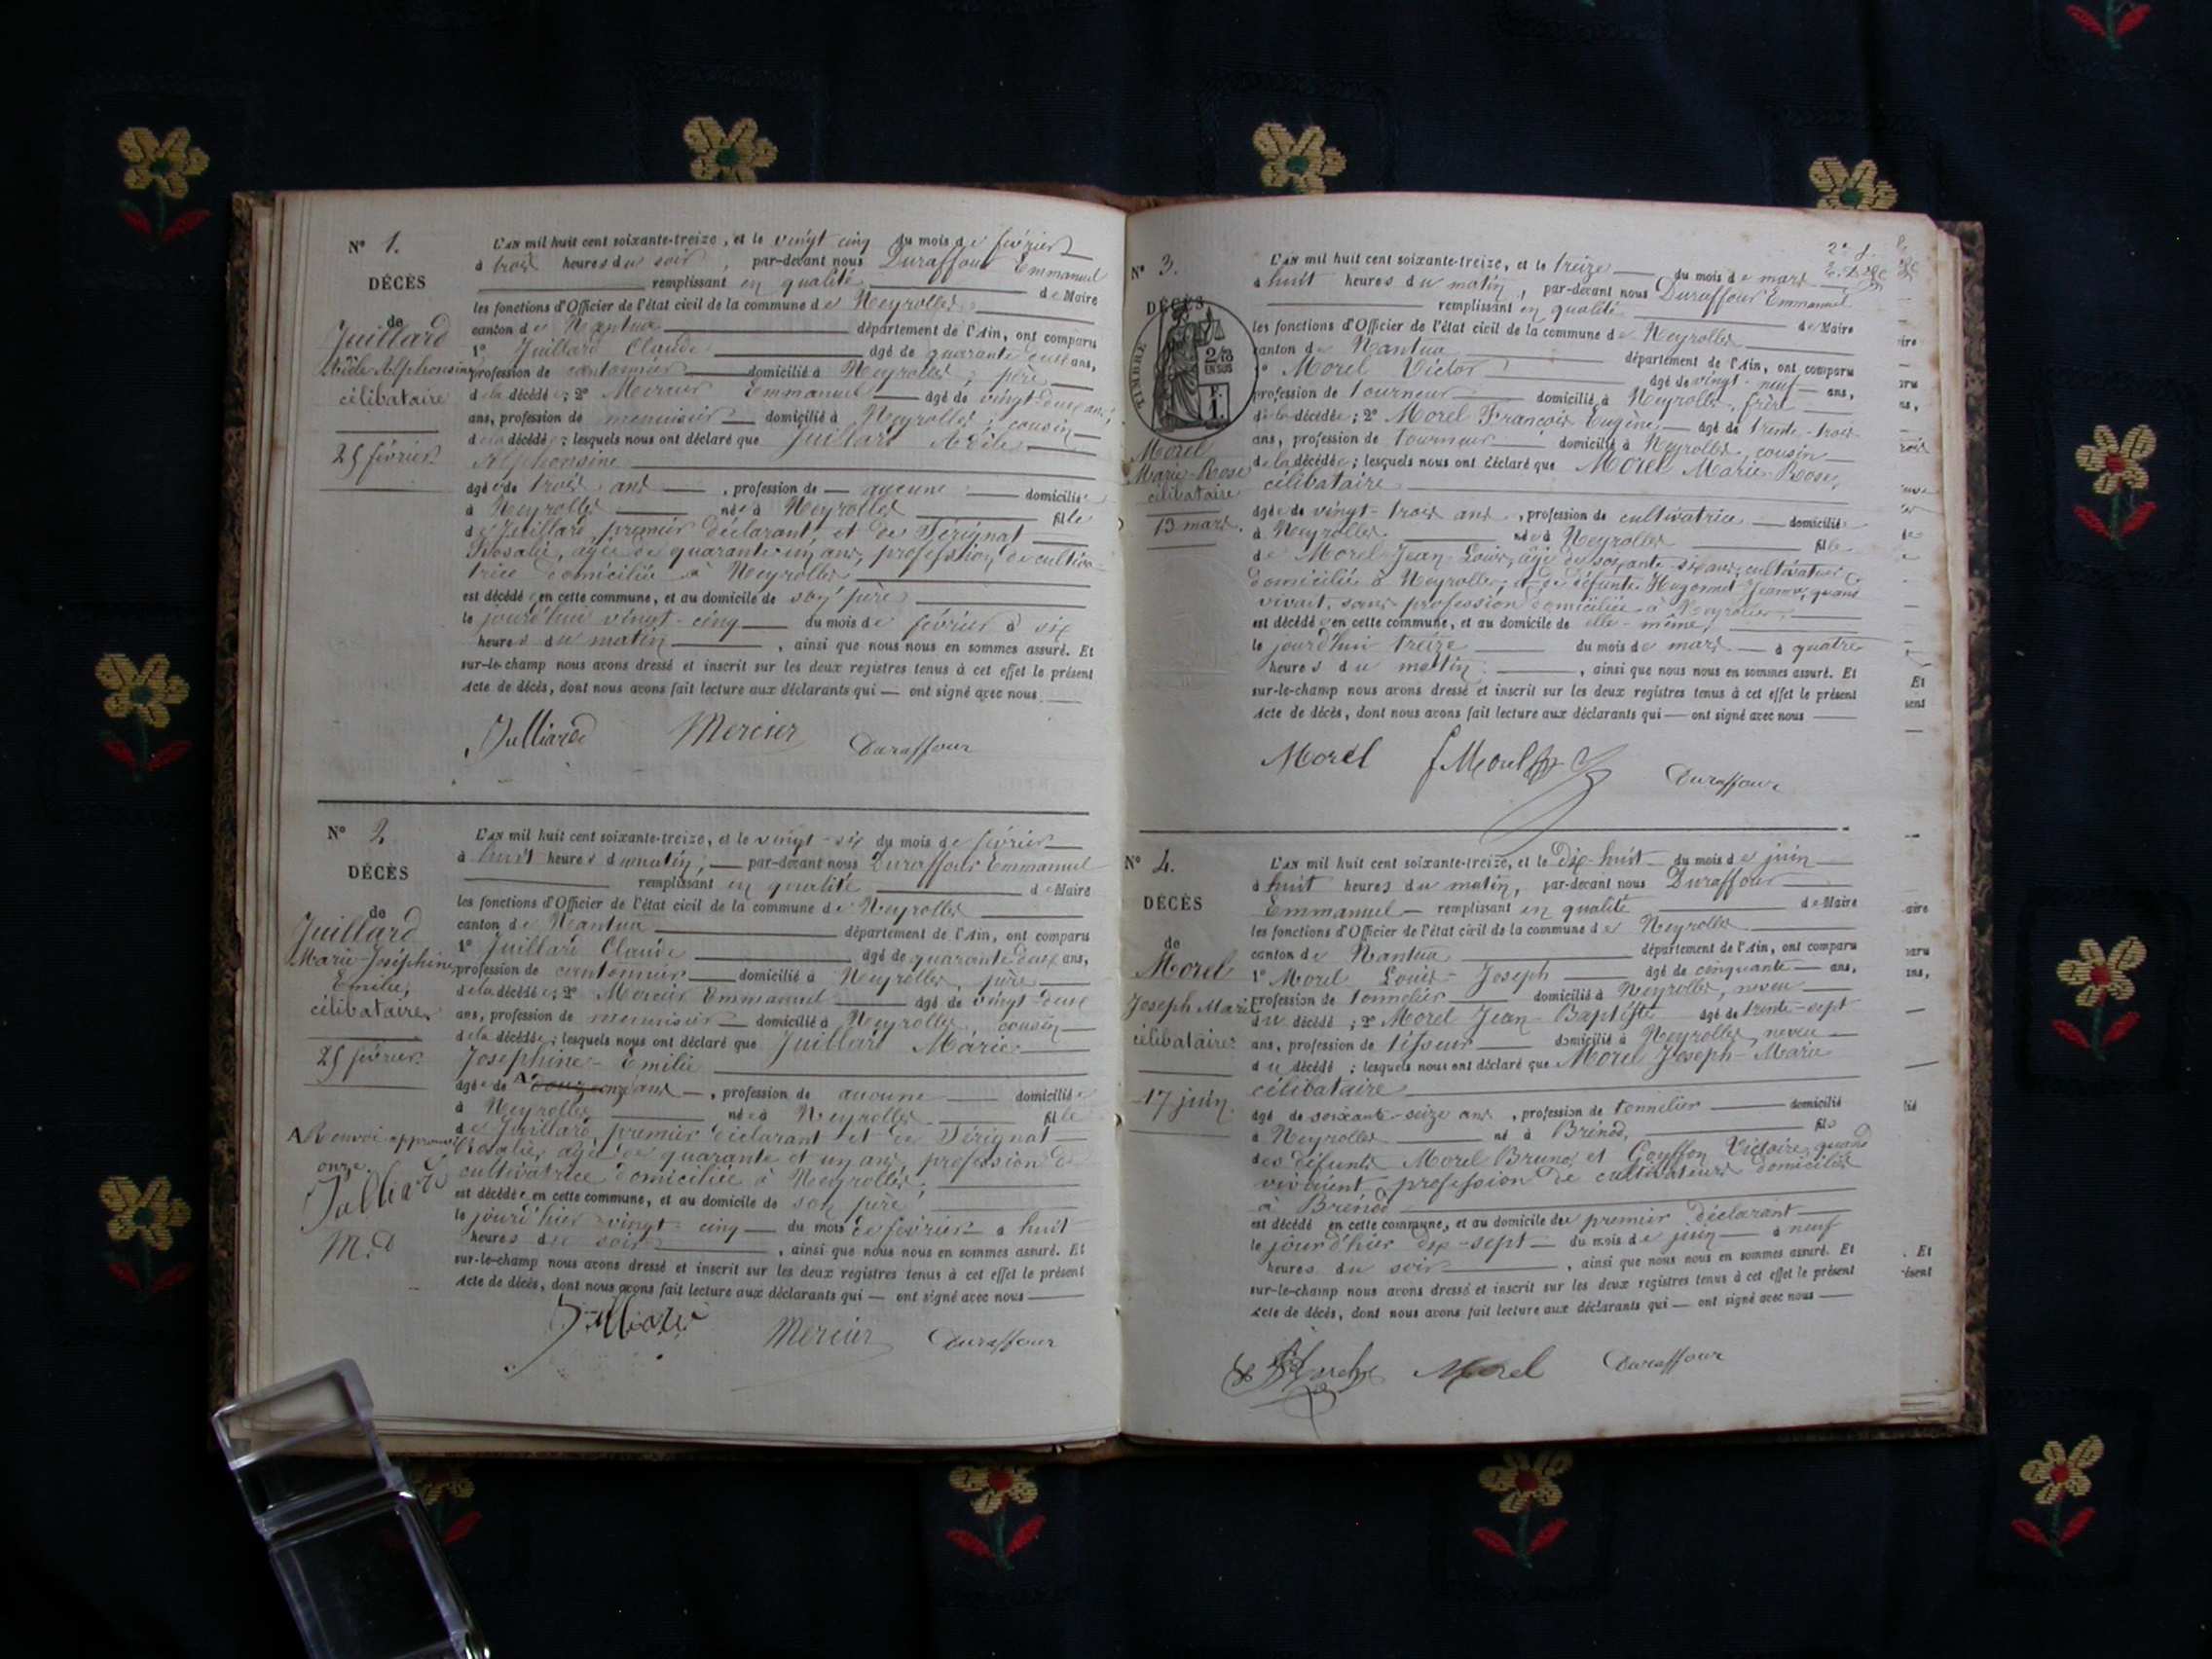 N° 1.
DÉCÈS
de
Juillard
Adèle Alphonsine
célibataire
25 février
L'AN mil huit cent soixante-treize, et le vingt cinq du mois de février
à trois heures du soir, par-devant nous Duraffour Emmanuel
remplissant en qualité de Maire
les fonctions d'Officier de l'état civil de la commune de Neyrolles
canton de Nantua département de l'Ain, ont comparu
1° Juillard Claude âgé de quarante deux ans,
profession de cantonnier domicilié à Neyrolles, père
de la décédée; 2° Mercier Emmanuel âgé de vingt-deux ans,
ans, profession de menuisier domicilié à Neyrolles, cousin
de la décédée; lesquels nous ont déclaré que Juillard Adèle
Alphonsine
âgée de trois ans, profession de aucune domiciliée
à Neyrolles née à Neyrolles fille
de Juillard premier déclarant et de Sérignat
Rosalie, agée de quarante un ans, profession de cultiva-
trice domiciliée à Neyrolles
est décédée en cette commune, et au domicile de son père
le jourd'hui vingt-cinq du mois de février à six
heures du matin, ainsi que nous nous en sommes assuré. Et
sur-le-champ nous avons dressé et inscrit sur les deux registres tenus à cet effet le présent
Acte de décès, dont nous avons fait lecture aux déclarants qui — ont signé avec nous.
Julliard Mercier Duraffour
N° 2.
DÉCÈS
de
Juillard
Marie-Joséphine
Emilie,
célibataire.
25 février
A Renvoi approuvé
onze.
Julliard
M.D
L'AN mil huit cent soixante-treize, et le vingt-six du mois de février
à huit heures du matin, par-devant nous Duraffour Emmanuel
remplissant en qualité de Maire
les fonctions d'Officier de l'état civil de la commune de Neyrolles
canton de Nantua département de l'Ain, ont comparu
1° Juillard Claude âgé de quarante deux ans,
profession de cantonnier domicilié à Neyrolles, père
de la décédée; 2° Mercier Emmanuel âgé de vingt deux
ans, profession de menuisier domicilié à Neyrolles, cousin
de la décédée; lesquels nous ont déclaré que Juillard Marie
Joséphine-Emilie
âgée de A ans, profession de aucune domiciliée
à Neyrolles née à Neyrolles fille
de Juillard premier déclarant et de Sérignat
Rosalie, agée de quarante et un ans, profession de
cultivatrice domiciliée à Neyrolles,
est décédée en cette commune, et au domicile de son père
le jour d'hier vingt-cinq du mois de février à huit
heures du soir, ainsi que nous nous en sommes assuré. Et
sur-le-champ nous avons dressé et inscrit sur les deux registres tenus à cet effet le présent
Acte de décès, dont nous avons fait lecture aux déclarants qui — ont signé avec nous
Julliard Mercier Duraffour
N° 3.
DÉCÈS
TIMBRE
2/10
EN SUS
F.
1.
Morel
Marie-Rose
célibataire
13 mars.
L'AN mil huit cent soixante-treize, et le treize du mois de mars
à huit heures du matin, par-devant nous Duraffour Emmanuel
remplissant en qualité de Maire
les fonctions d'Officier de l'état civil de la commune de Neyrolles
canton de Nantua département de l'Ain, ont comparu
1° Morel Victor âgé de vingt-neuf ans,
profession de tourneur domicilié à Neyrolles, frère
de la décédée; 2° Morel François Eugène, âgé de trente-trois
ans, profession de tourneur domicilié à Neyrolles, cousin
de la décédée; lesquels nous ont déclaré que Morel Marie-Rose,
célibataire
âgée de vingt-trois ans, profession de cultivatrice domiciliée
à Neyrolles née à Neyrolles fille
de Morel Jean-Louis, âgé de soixante-six ans, cultivateur
domicilié à Neyrolles, et de défunte Hugonnet Jeanne, quand
vivait, sans profession domiciliée à Neyrolles,
est décédée en cette commune, et au domicile de elle-même,
le jourd'hui treize du mois de mars à quatre
heures du matin, ainsi que nous nous en sommes assuré. Et
sur-le-champ nous avons dressé et inscrit sur les deux registres tenus à cet effet le présent
Acte de décès, dont nous avons fait lecture aux déclarants qui — ont signé avec nous
Morel Duraffour
N° 4.
DÉCÈS
de
Morel
Joseph Marie
célibataire
17 juin.
L'AN mil huit cent soixante-treize, et le dix-huit du mois de juin
à huit heures du matin, par-devant nous Duraffour
Emmanuel remplissant en qualité de Maire
les fonctions d'Officier de l'état civil de la commune de Neyrolles
canton de Nantua département de l'Ain, ont comparu
1° Morel Louis-Joseph âgé de cinquante ans,
profession de tonnelier domicilié à Neyrolles, neveu
du décédé; 2° Morel Jean-Baptiste âgé de trente-sept
ans, profession de tisseur domicilié à Neyrolles, neveu
du décédé; lesquels nous ont déclaré que Morel Joseph-Marie
célibataire
âgé de soixante-seize ans, profession de tonnelier domicilié
à Neyrolles né à Brénod, fils
des défunts Morel Bruno et Goyffon Victoire, quand
vivaient profession de cultivateurs domiciliés
à Brénod
est décédé en cette commune, et au domicile du premier déclarant
le jour d'hier dix-sept du mois de juin à neuf
heures du soir, ainsi que nous nous en sommes assuré. Et
sur-le-champ nous avons dressé et inscrit sur les deux registres tenus à cet effet le présent
Acte de décès, dont nous avons fait lecture aux déclarants qui — ont signé avec nous
Morel Duraffour